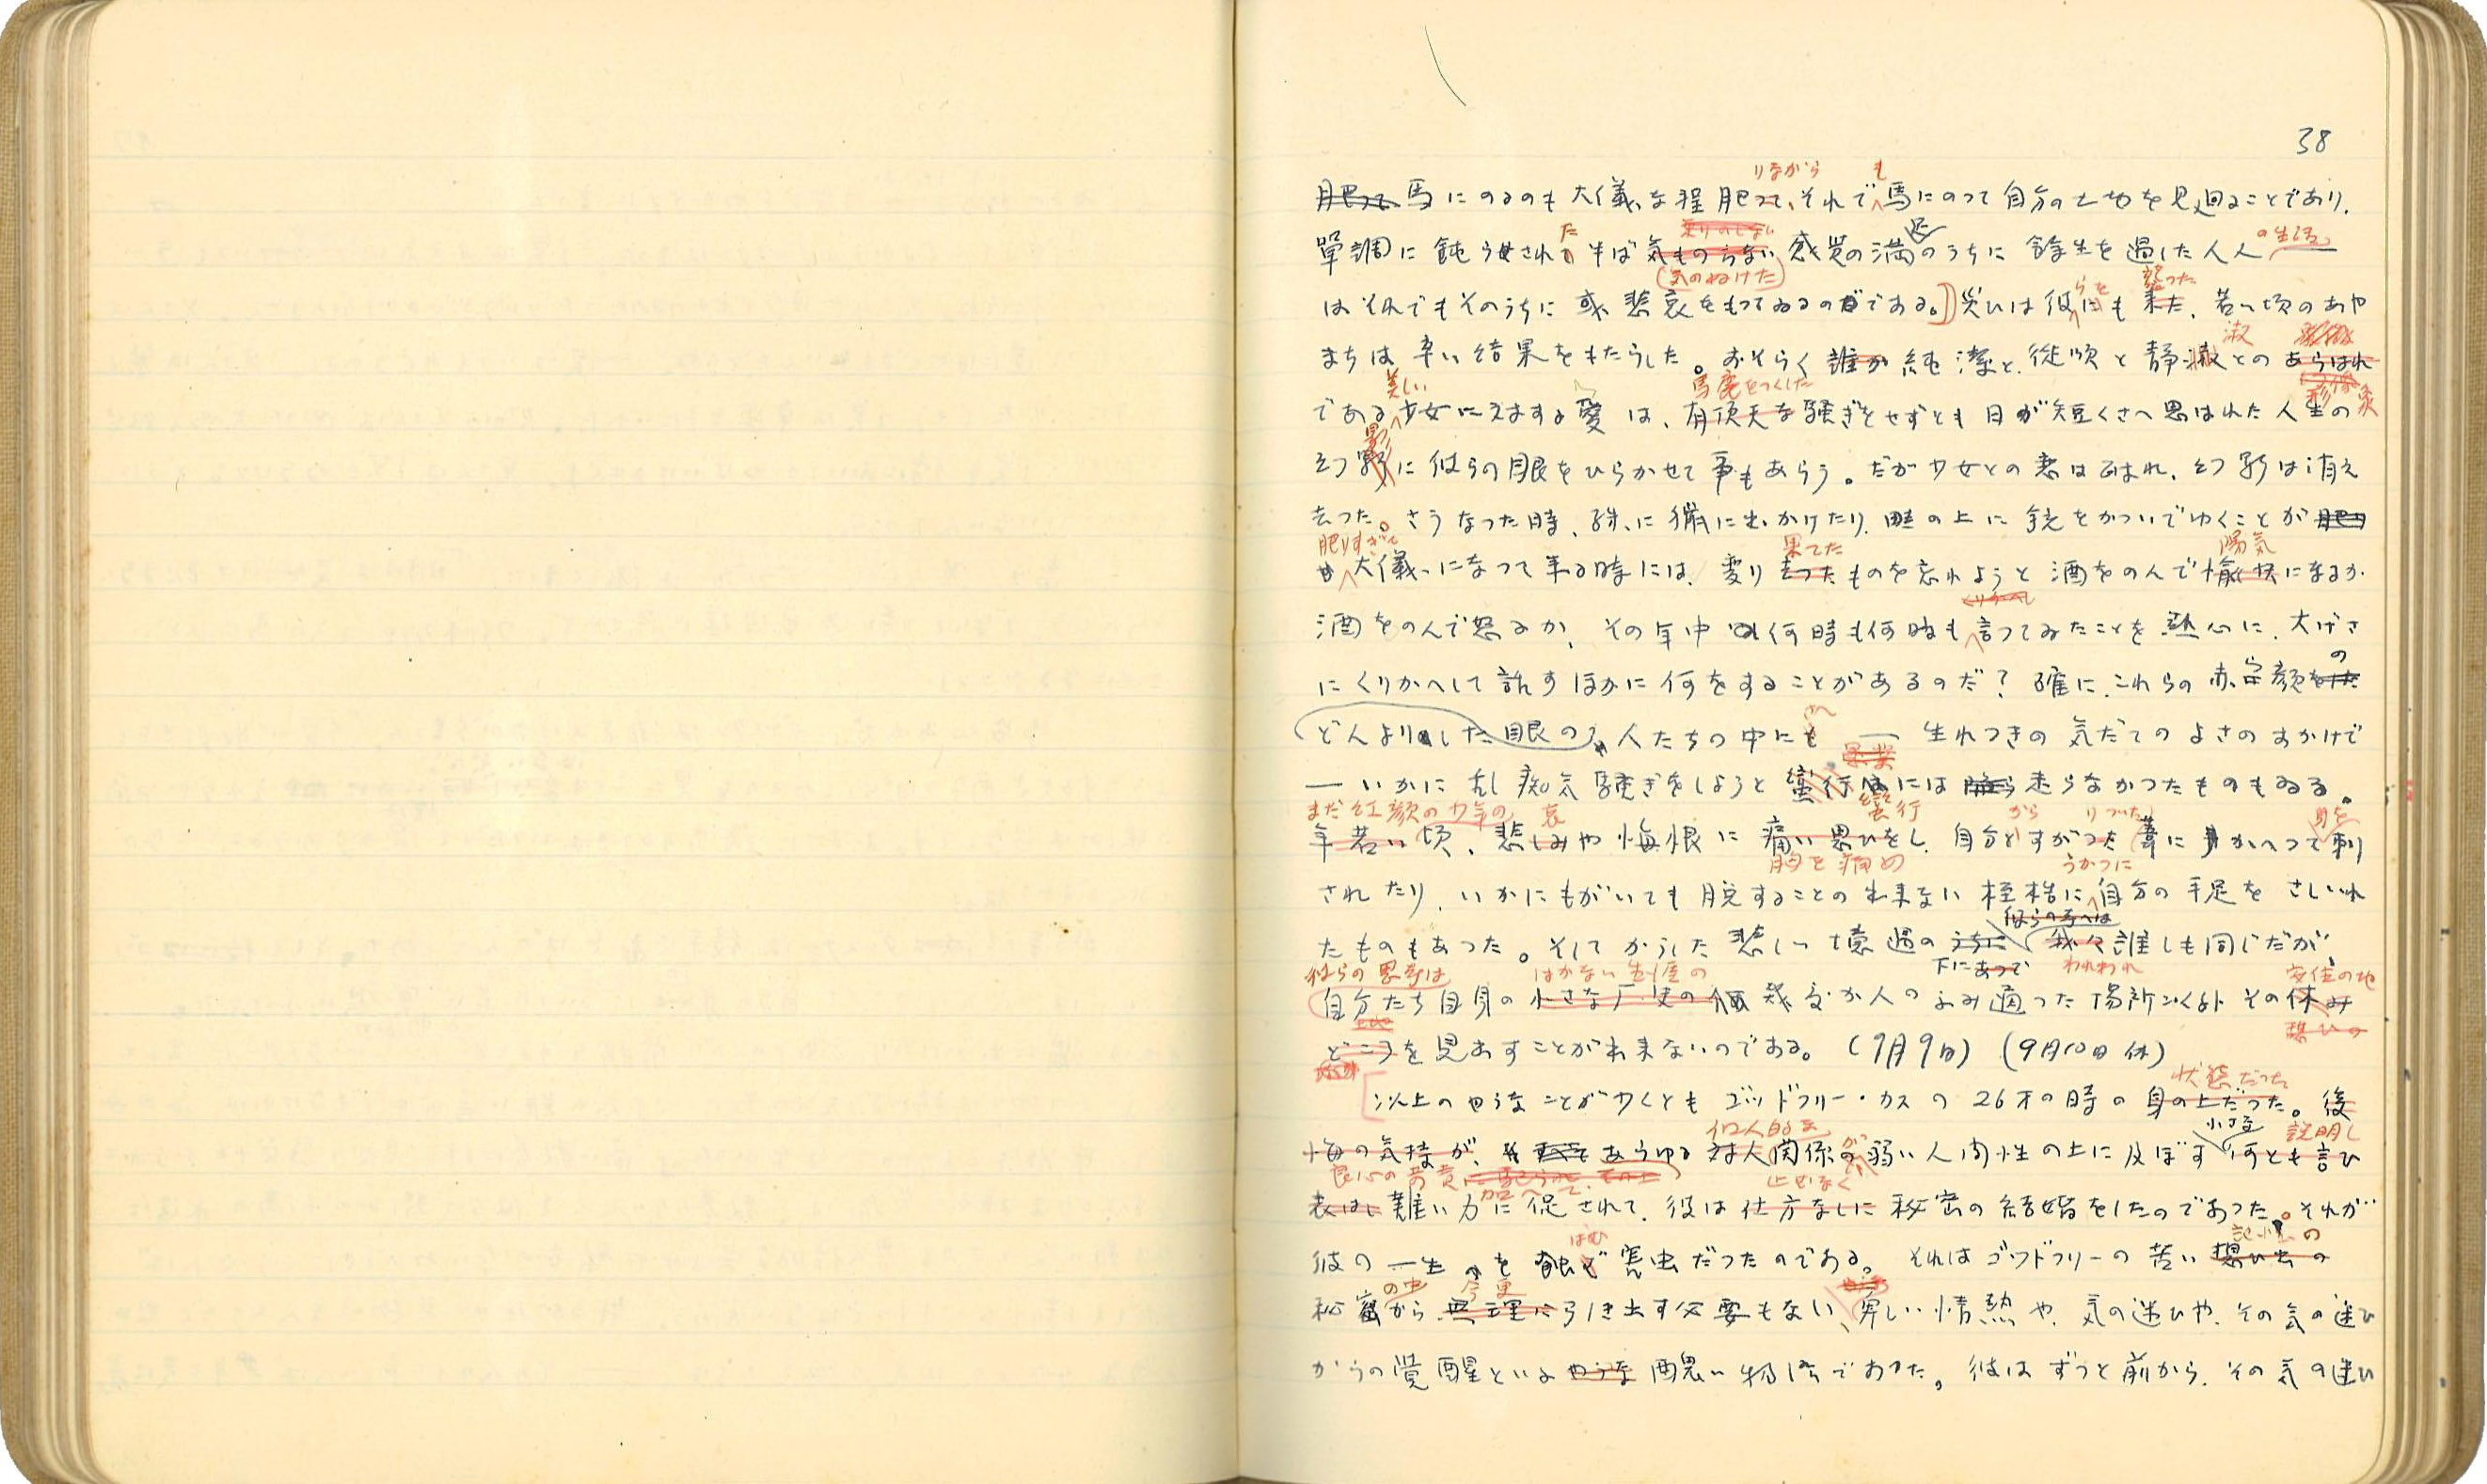 38
りながら も
肥つて馬にのるのも大儀な程肥つて、それで馬にのつて自分の土地を見廻ることであり、
た 足 の生活
單調に鈍らせされ半ば気ものらない感覚の満のうちに餘生を過した人人
(気のぬけた) らを 襲つた
はそれでもそのうちに或悲哀をもつてゐるのである。】災ひは彼にも来た、若い頃のあや
淑
まちは辛い結果をもたらした。おそらく誰か純潔と、従順と静淑との あらはれ
美しい 馬鹿をつくした
である少女にえする愛は、有頂天な騒ぎをせずとも日が短くさへ思はれた人生の
影
幻影に彼らの眼をひらかせて事もあらう。だが少女との恋は破れ、幻影は消え
去つた。さうなつた時、殊に猟に出かけたり、畦の上に銃をかついでゆくことが肥り
肥りすぎて 果てた 陽気
が大儀になつて来る時には、変り去つたものを忘れようと酒をのんで愉快になるか
くりかへし
酒をのんで怒るか、その年中何時も何時も言つてゐたことを熱心に、大げさ
の
にくりかへして話すほかに何をすることがあるのだ?確に、これらの赤い顔をした
さへ
どんよりした眼の、人たちの中にも — 生れつきの気だてのよさのおかげで
悪業
— いかに乱痴気騒ぎをしようと蛮行には走らなかつたものもゐる。
まだ紅顔の少年の 哀 蛮行 から りついた 身を
年若い頃、悲しみや悔恨に痛い思ひをし、自分とすがつた葦にかへつて刺
胸を痛め うかつに
されたり、いかにもがいても脱することの出来ない桎梏に自分の手足をさしいれ
彼らの考へは
たものもあつた。そしてかうした悲しい境遇のうちに 我々誰しも同じだが、
彼らの思考は はかない生涯の 下にあつて われわれ 安住の地
自分たち自身の小さな歴史の幾度か人のふみ通つた場所よりほかその休み
憩ひの
どころを見出すことが出来ないのである。(9月9日) (9月10日 休)
状態だつた
以上のやうなことが少くともゴッドフリー・カスの26才の時の身の上だつた。後
個人的な が 小さな 説明し
悔の気持が、あらゆる対人関係の弱い人間性の上に及ぼす何とも言ひ
良心の苛責に 加へて、 止むなく
表はし難い力に促されて、彼は仕方なしに秘密の結婚をしたのであつた。それが
はむ 記憶の
彼の一生を蝕む害虫だつたのである。それはゴッドフリーの苦い想ひ出の
の中 今更
秘密から無理に引き出す必要もない、卑しい情熱や、気の迷ひや、その気の迷ひ
からの覚醒といふやうな醜い物語であつた。彼はずつと前から、その気の迷ひ